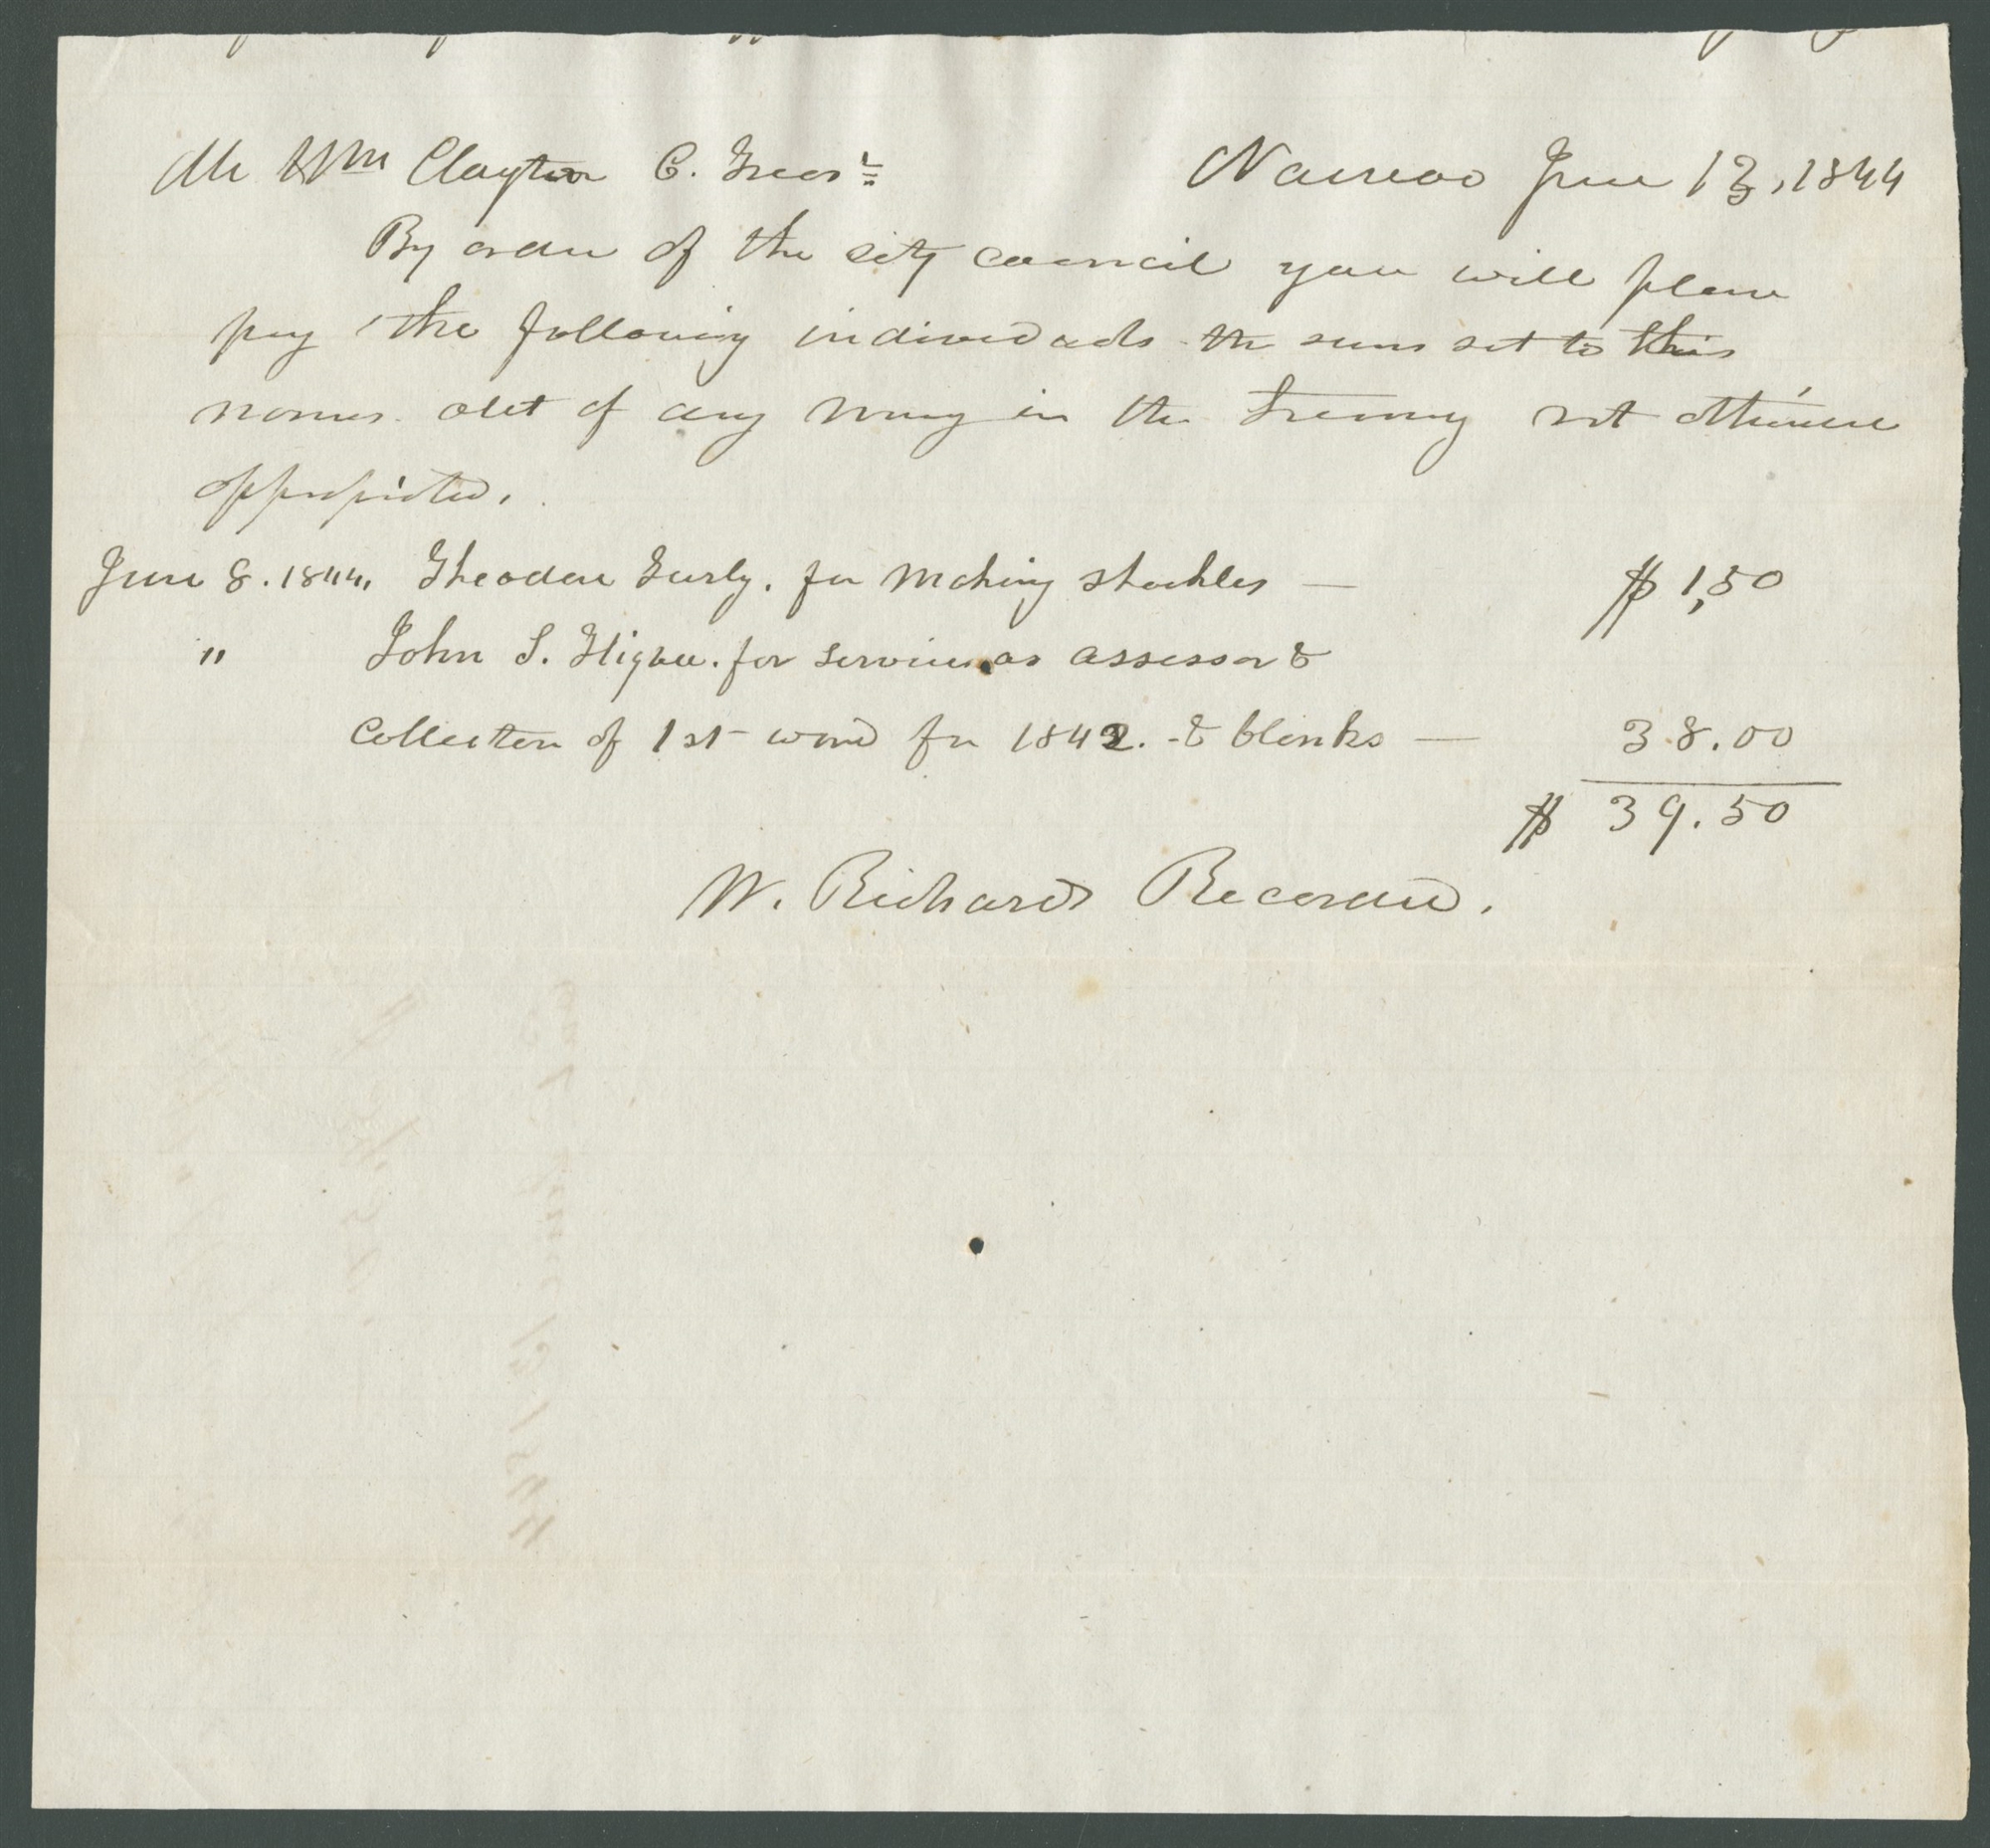 Mr Wm Clayton C. Treasr. Nauvoo June 13, 1844
By order of the city council you will please
pay the following individuals the sums set to their
names. out of any money in the treasury not otherwise
appropriated.
June 8. 1844. Theodore Turly. for making shackles — $ 1,50
" John S. Higbee. for services as assessor &
collector of 1st ward for 1842. & blanks — 38.00
$ 39.50
W. Richards Recorder.